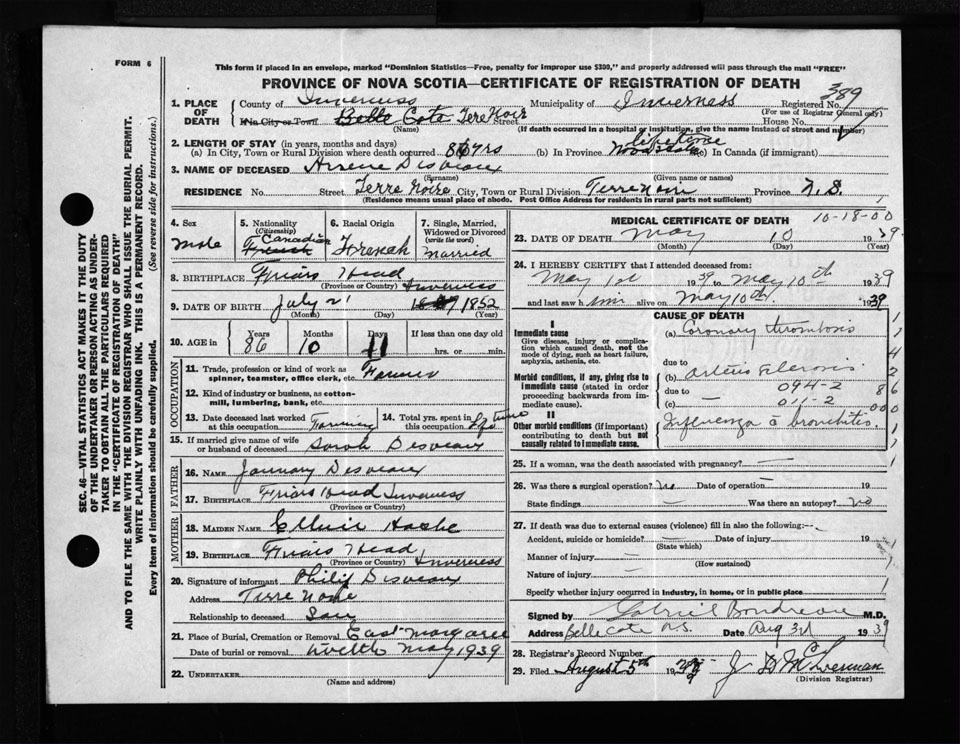 FORM 6
This form if placed in an envelope, marked "Dominion Statistics—Free, penalty for improper use $300," and properly addressed will pass through the mail "FREE"
PROVINCE OF NOVA SCOTIA—CERTIFICATE OF REGISTRATION OF DEATH
389
1. PLACE OF DEATH County of Inverness Municipality of Inverness Registered No.
(For use of Registrar General only)
If in City or Town Belle Cote Terre Noir Street House No.
(Name) (If death occurred in a hospital or institution, give the name instead of street and number)
2. LENGTH OF STAY (in years, months and days)
(a) In City, Town or Rural Division where death occurred 86 yrs (b) In Province life time Nova Scotia (c) In Canada (if immigrant)
3. NAME OF DECEASED Arsene Desveaux
(Surname) (Given name or names)
RESIDENCE No Street Terre Noire City, Town or Rural Division Terre Noire Province N.S.
(Residence means usual place of abode. Post Office Address for residents in rural parts not sufficient)
4. Sex Male
5. Nationality (Citizenship) French Canadian
6. Racial Origin French
7. Single, Married, Widowed or Divorced (write the word) Married
8. BIRTHPLACE Friars Head Inverness
(Province or Country)
9. DATE OF BIRTH July 21 1852
(Month) (Day) (Year)
10. AGE in Years 86 Months 10 Days 11 If less than one day old
hrs. or min.
OCCUPATION
11. Trade, profession or kind of work as spinner, teamster, office clerk, etc. Farmer
12. Kind of industry or business, as cotton-mill, lumbering, bank, etc.
13. Date deceased last worked at this occupation Farming
14. Total yrs. spent in this occupation Life time
15. If married give name of wife or husband of deceased Sarah Desveaux
FATHER
16. NAME January Desveaux
17. BIRTHPLACE Friars Head Inverness
(Province or Country)
MOTHER
18. MAIDEN NAME Hache
19. BIRTHPLACE Friars Head Inverness
(Province or Country)
20. Signature of informant Philip Desveaux
Address Terre Noire
Relationship to deceased Son
21. Place of Burial, Cremation or Removal East Margaree
Date of burial or removal twelth May 1939
22. UNDERTAKER
(Name and address)
MEDICAL CERTIFICATE OF DEATH
10-18-00
23. DATE OF DEATH May 10 1939
(Month) (Day) (Year)
24. I HEREBY CERTIFY that I attended deceased from
May 1st 1939 to May 10th 1939
and last saw him alive on May 10th 1939
CAUSE OF DEATH
I
Immediate cause
Give disease, injury or complication which caused death, not the mode of dying, such as heart failure, asphyxia, asthenia, etc.
(a) Coronary thrombosis
due to
Morbid conditions, if any, giving rise to immediate cause (stated in order proceeding backwards from immediate cause).
(b) arterio sclerosis
due to 094-2
(c) — 011-2
II
Other morbid conditions (if important) contributing to death but not causally related to immediate cause.
Influenza c bronchitis
25. If a woman, was the death associated with pregnancy? —
26. Was there a surgical operation? no Date of operation — 19
State findings — Was there an autopsy? no
27. If death was due to external causes (violence) fill in also the following:—
Accident, suicide or homicide? — Date of injury 19
(State which)
Manner of injury —
(How sustained)
Nature of injury —
Specify whether injury occurred in Industry, in home, or in public place
Signed by Gabriel Boudreau M.D.
Address Belle Cote N.S. Date Aug 3rd 1939
28. Registrar's Record Number
29. Filed August 5th 1939
(Division Registrar)
SEC. 46—VITAL STATISTICS ACT MAKES IT THE DUTY
OF THE UNDERTAKER OR PERSON ACTING AS UNDER-
TAKER TO OBTAIN ALL THE PARTICULARS REQUIRED
IN THE "CERTIFICATE OF REGISTRATION OF DEATH"
AND TO FILE THE SAME WITH THE DIVISION REGISTRAR WHO SHALL ISSUE THE BURIAL PERMIT.
WRITE PLAINLY WITH UNFADING INK. THIS IS A PERMANENT RECORD.
Every item of information should be carefully supplied. (See reverse side for instructions.)